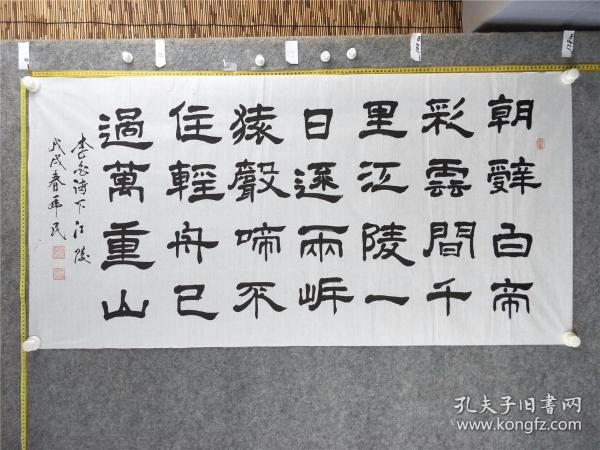 朝辭白帝
彩雲間千
里江陵一
日還兩岍
猿聲啼不
住輕舟已
過萬重山
李白诗下江陵
戊戌春
孔夫子旧书网
www.kongfz.com